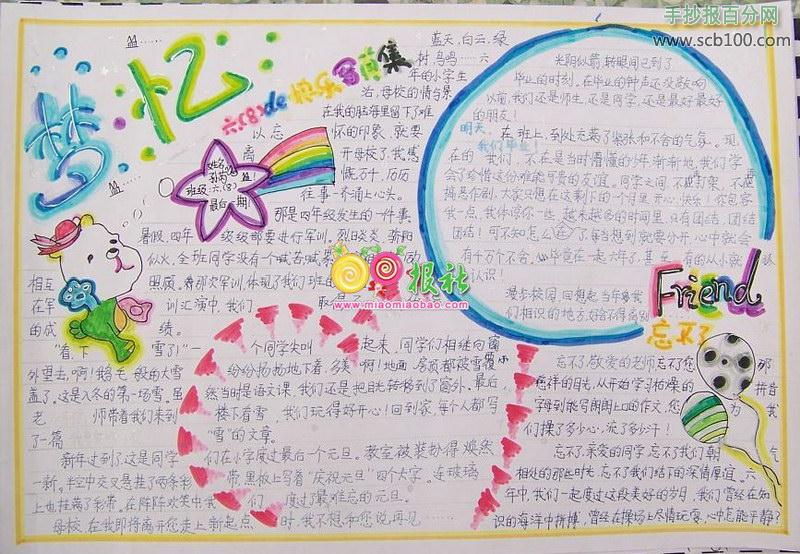 手抄报百分网
www.scb100.com
梦·忆
六(8)de快乐写前集
姓名:
班级:六(8)!
最后一期!
蓝天,白云,绿
树,鸟鸣……六
年的小学生
活,母校的情与景
在我的脑海里留下了难
以忘怀的印象,就要
离开母校了,我感
慨万千,历历
往事一齐涌上心头。
那是四年级发生的一件事,
暑假,四年级级部要进行军训,烈日炎炎,骄阳
似火,全班同学没有个喊苦喊
相互照顾。
在军训汇演中,我们取得了
的成绩。
“看,下雪了!”一个同学尖叫起来,同学们相继向窗
外望去,啊!鹅毛般的大雪纷纷扬扬地下着,多美啊!地面、房顶都被雪覆
盖了,这是入冬的第一场雪,虽然当时是语文课,我们还是把目光转移到了窗外。最后,
老师带着我们来到楼下看雪我们玩得好开心!回到家,每个人都写
了一篇“雪”的文章。
新年过到了,这是同学们在小学度过最后一个元旦。教室被装扮得焕然
一新。半空中交叉悬挂了两条彩带,黑板上写着“庆祝元旦”四个大字。连玻璃
上也挂满了彩带。在阵阵欢笑中我们度过最难忘的元旦。
母校,在我即将离开您走上新起点时,我不想和您说再见……
光阴似箭,转眼间已到了
毕业的时刻,在毕业的钟声还没敲响
以前,我们还是师生,还是同学,还是最好最好
的朋友!
明天,
我们毕业!
在班上,到处充满了紧张和不舍的气氛。现
在的我们,不在是当时懵懂的少年渐渐地,我们学
会了珍惜这份难能可贵的友谊。同学之间,不
搞恶作剧,大家只想在这剩下的个月里开心、快乐!你包容
我一点,我体谅你一些,越来越多的时间里,只有团结,团结
团结!可不知怎么每当想到就要分开,心中就会
有千万个不舍,毕竟在一起六年了,甚至有的从小就认
认识!
漫步校园,回想起当年我
们相识的地方舍不得离别
Friend
忘不了
忘不了,敬爱的老师,忘不了您那
慈祥的目光,从开始学习枯燥的拼音
字母到能写朗朗上口的作文,您为我
们操了多少心,流了多少汗!
忘不了,亲爱的同学,忘不了我们朝气
相处的那些时光,忘不了我们结下的深情厚谊,六
年中,我们一起度过这段美好的岁月,我们曾经在知
识的海洋中拼搏,曾经在操场上尽情玩耍,心中怎能平静?
报社
www.miaomiaobao.com